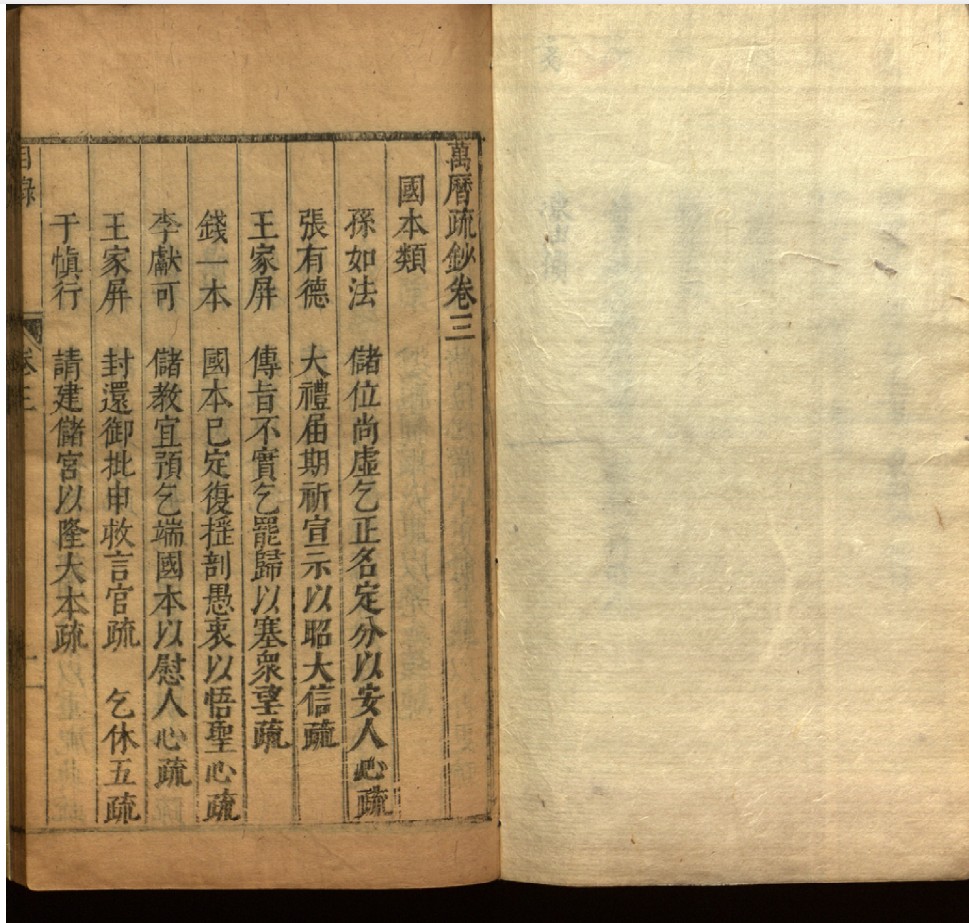 萬曆疏鈔卷三
國本類
孫如法 儲位尚虛乞正名定分以安人心疏
張有德 大禮届期祈宣示以昭大信疏
王家屏 傳旨不實乞罷歸以塞衆望疏
錢一本 國本已定復搖剖愚衷以悟聖心疏
李獻可 儲教宜預乞端國本以慰人心疏
王家屏 封還御批申救言官疏 乞休五疏
于愼行 請建儲宮以隆大本疏
目錄 卷三 一